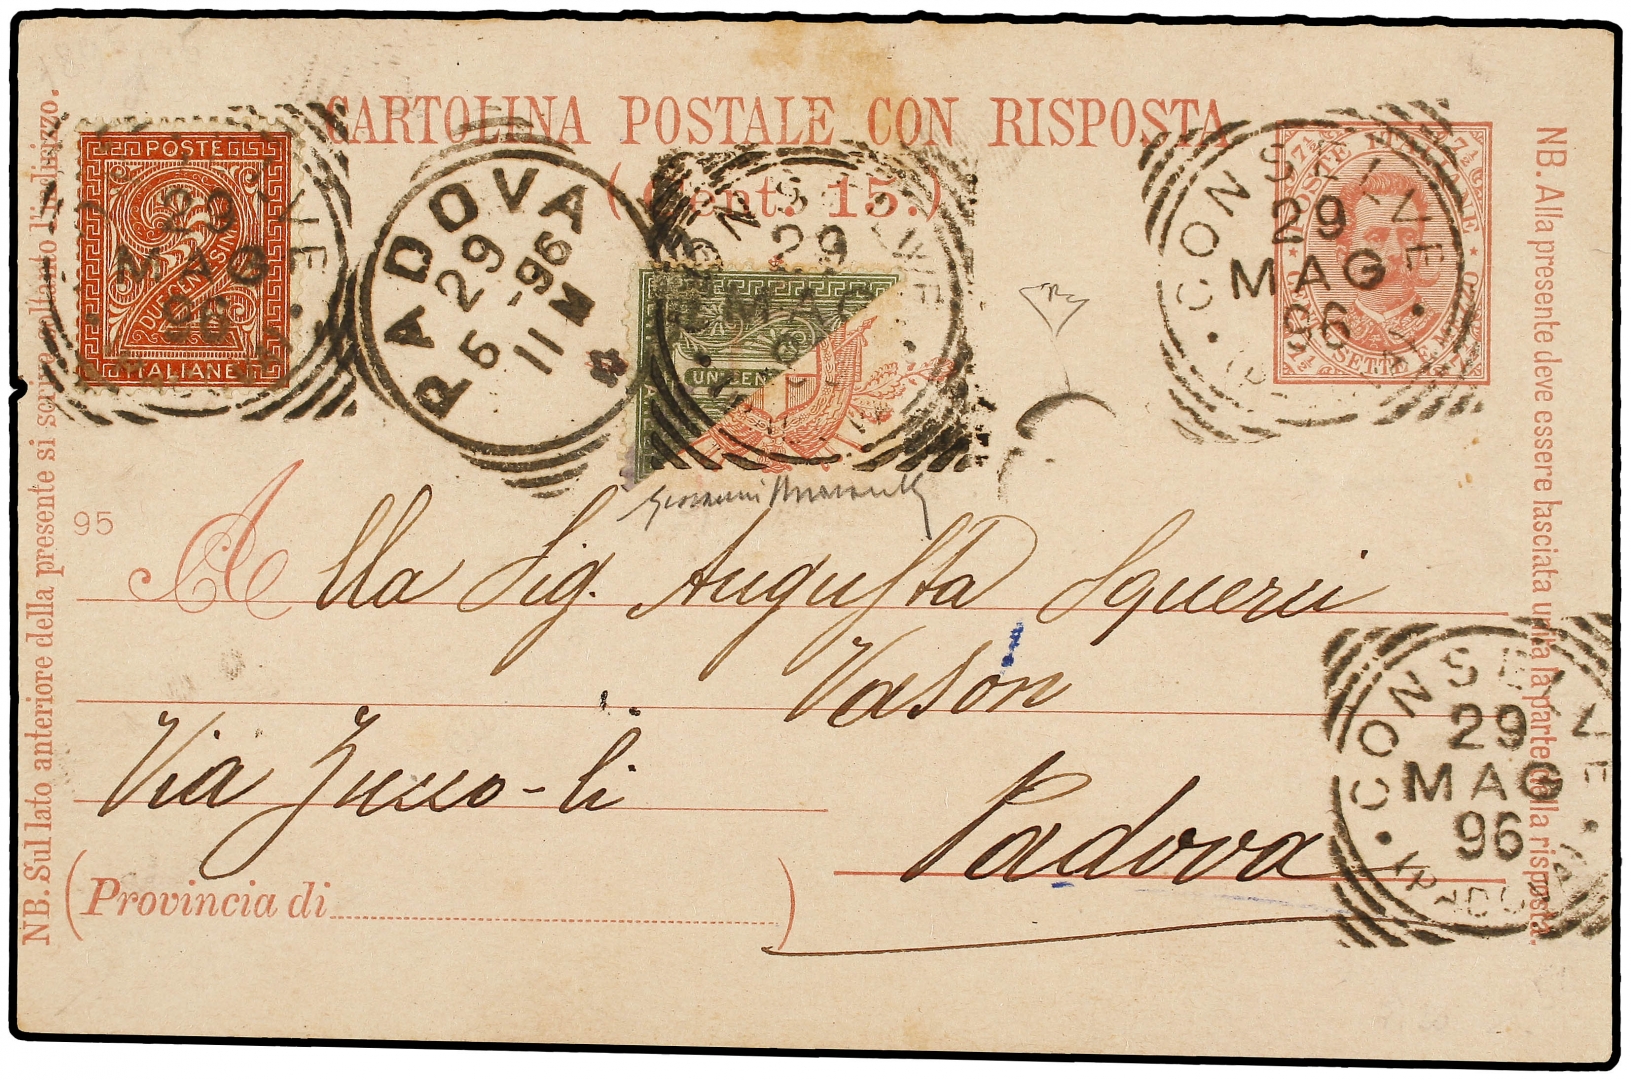 CARTOLINA POSTALE CON RISPOSTA
(Cent. 15.)
POSTE
DUE CENTESIMI
ITALIANE
29
MAG
96
PADOVA
29
5 -96
11 M
CONSELVE
29
MAG
UN CEN
CONSELVE
29
MAG
96
POSTE ITALIANE
CENT. SETTE E MEZZO
95
Alla Sig. Augusta Squerci
Vason
Via Zucco-li
Padova
(Provincia di )
CONSELVE
29
MAG
96
(PADOVA)
NB. Sul lato anteriore della presente si scrive soltanto l'indirizzo.
NB. Alla presente deve essere lasciata unita la parte della risposta.